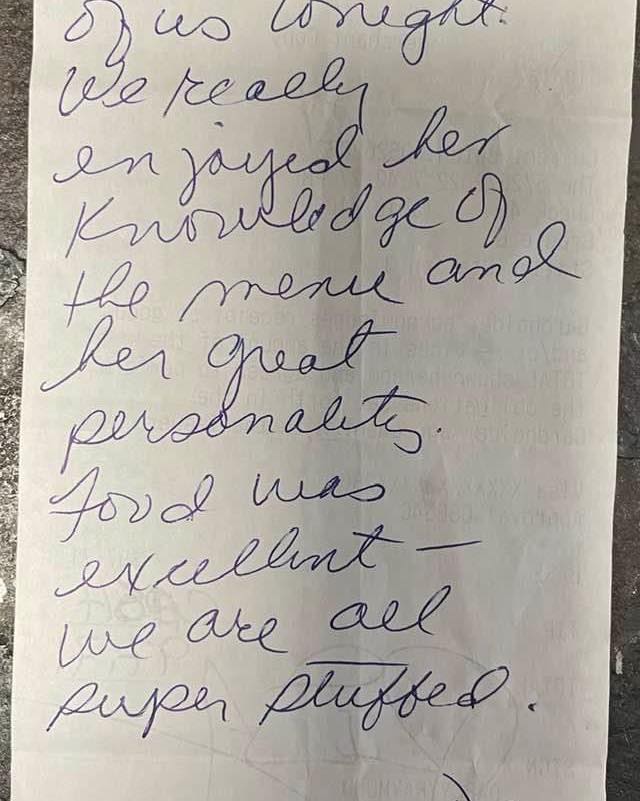 of us tonight.
We really
enjoyed her
Knowledge of
the menu and
her great
personality.
Food was
excellent —
we are all
super stuffed.